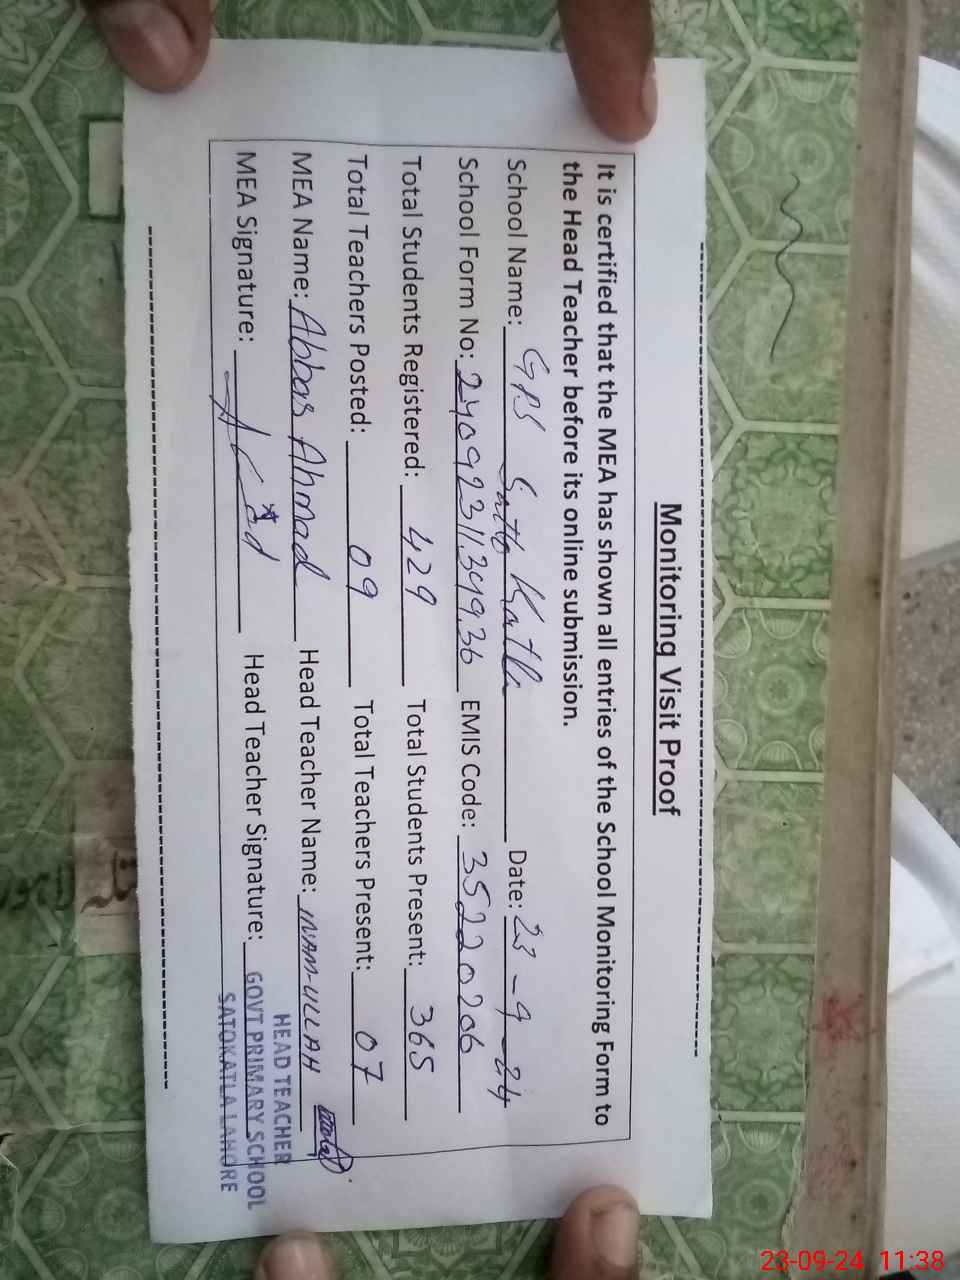 Monitoring Visit Proof
It is certified that the MEA has shown all entries of the School Monitoring Form to
the Head Teacher before its online submission.
School Name: GPS Satto Katla Date: 23-9-24
School Form No: 2409231134936 EMIS Code: 35220206
Total Students Registered: 429 Total Students Present: 365
Total Teachers Posted: 09 Total Teachers Present: 07
MEA Name: Abbas Ahmad Head Teacher Name: INAM-ULLAH
MEA Signature: Head Teacher Signature:
HEAD TEACHER
GOVT PRIMARY SCHOOL
SATOKATLA LAHORE
23-09-24 11:38